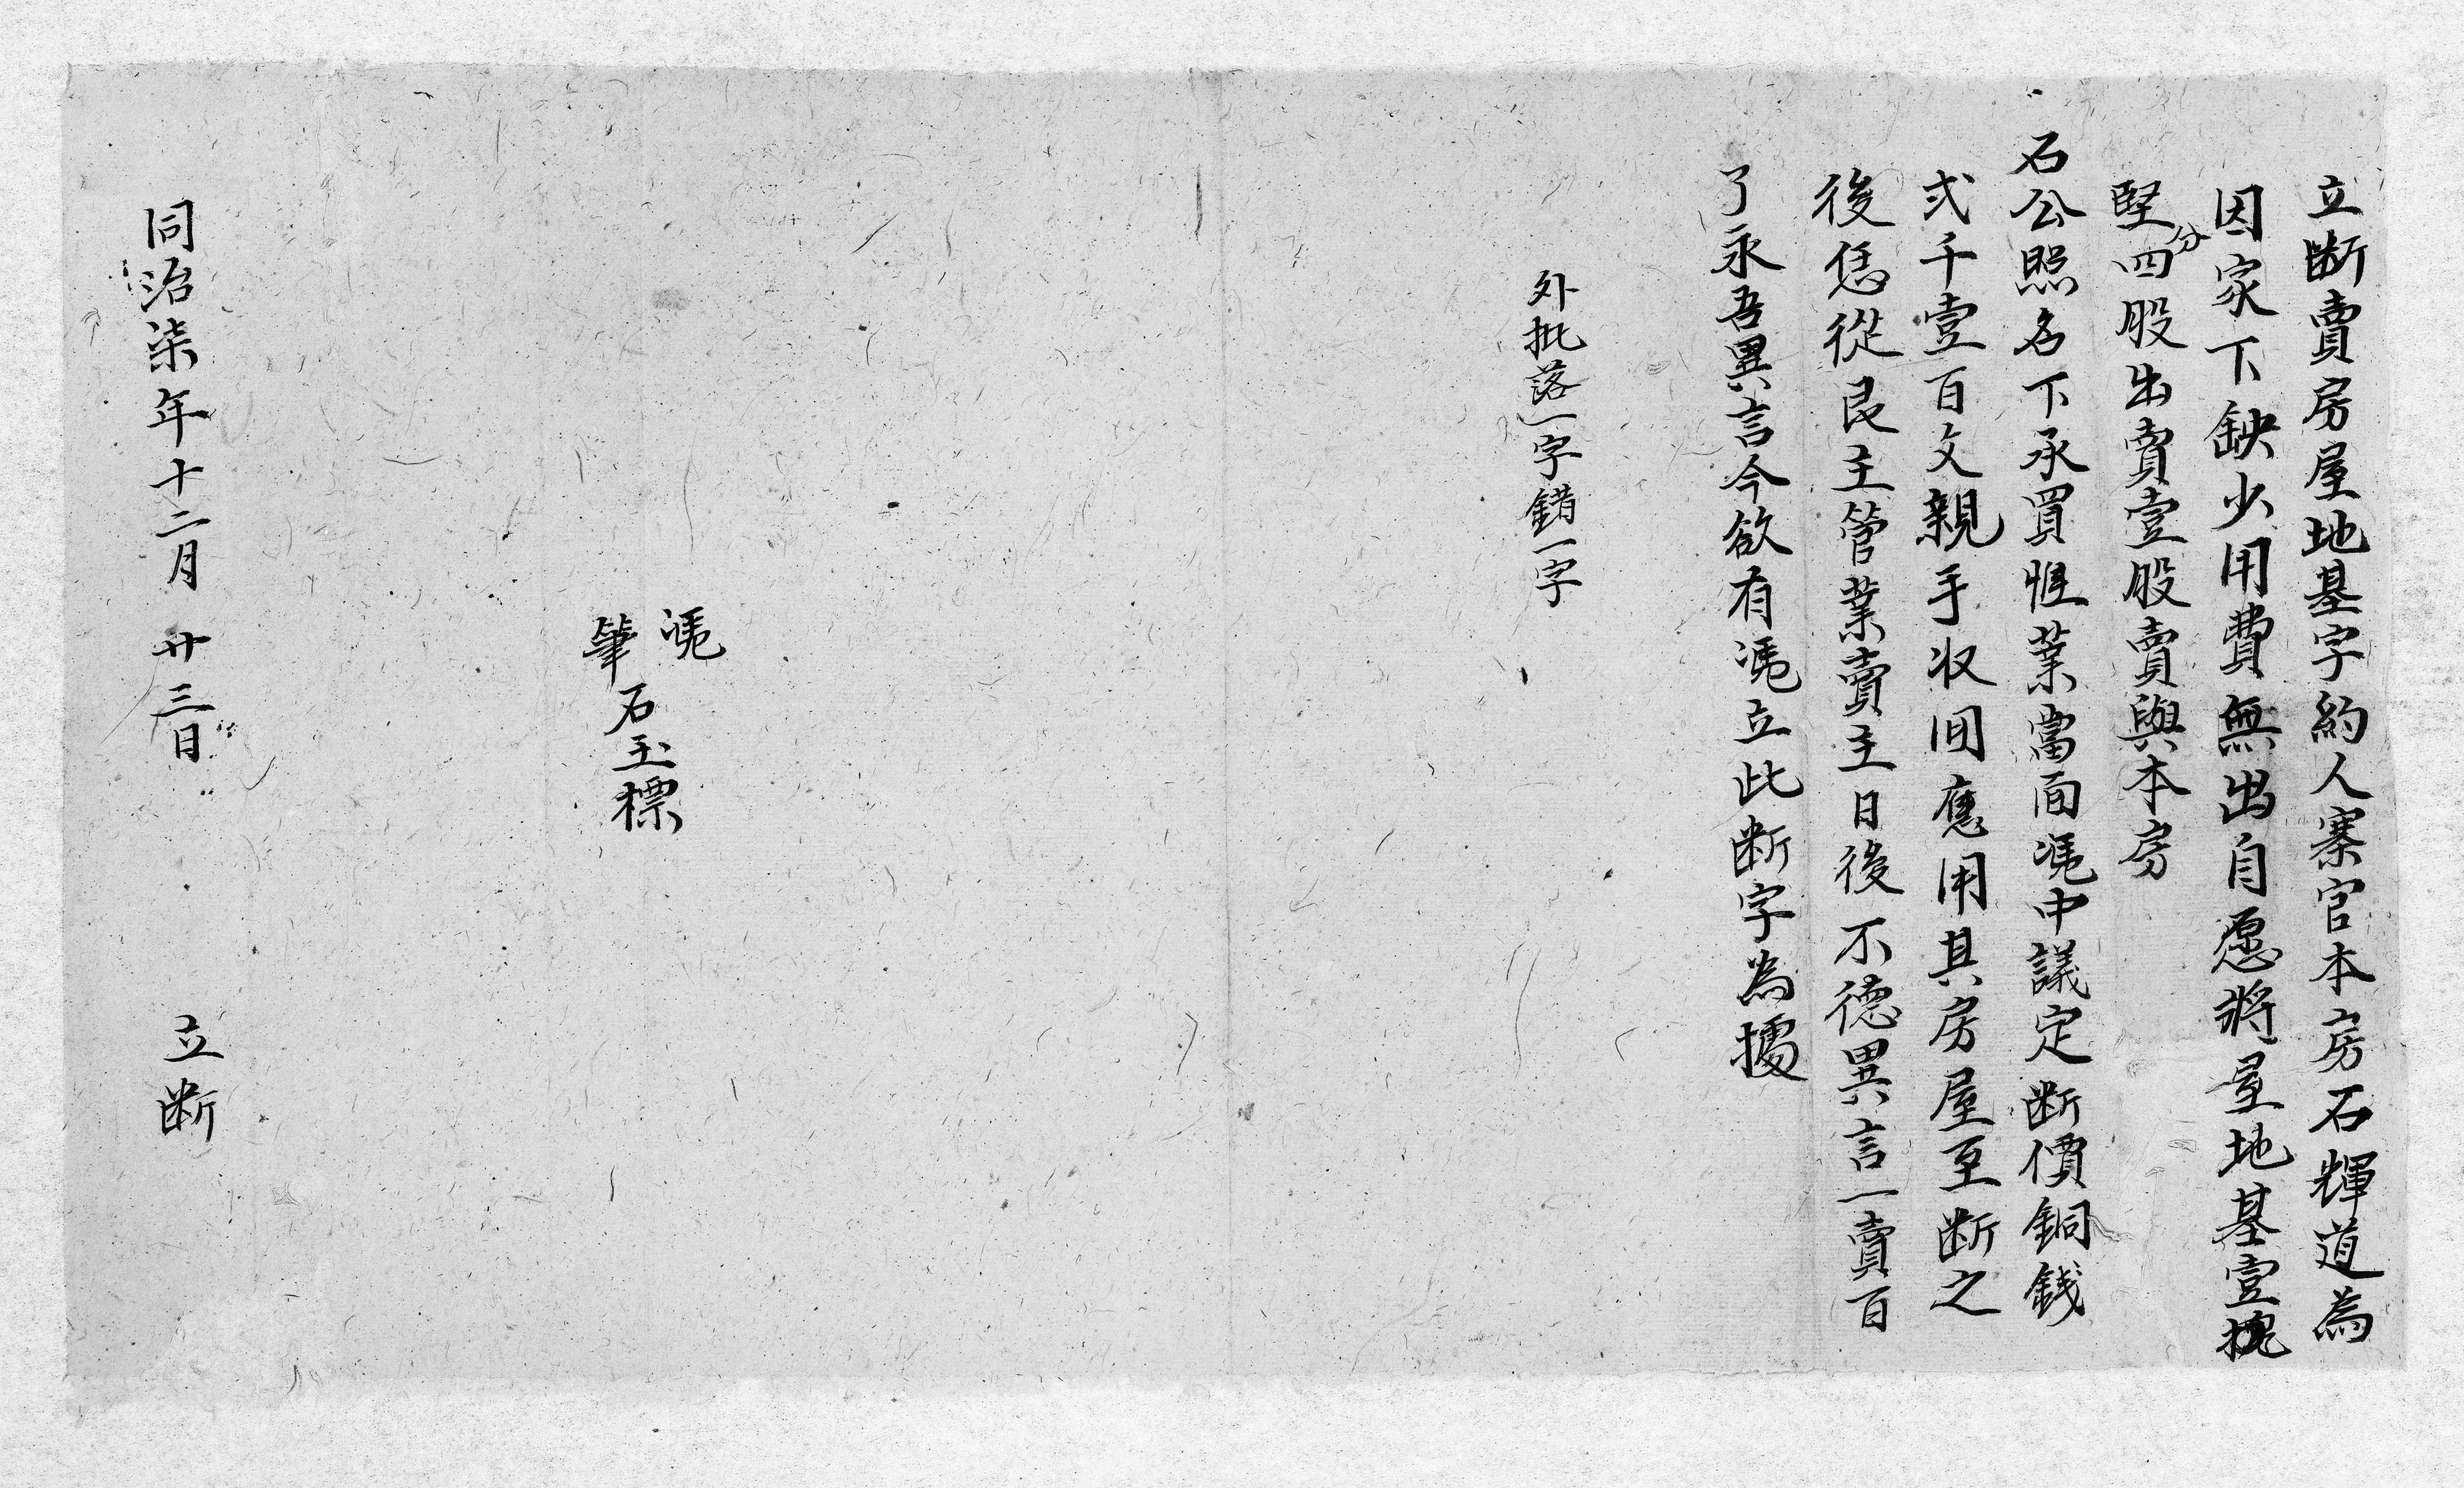 立断賣房屋地基字約人寨官本房石輝道為
因家下缺少用費無出自愿將屋地基壹塊
堅分四股出賣壹股賣與本房
石公照名下承買惟業當面凴中議定断價銅錢
弍千壹百文親手収囬應用其房屋至断之
後恁從艮主管業賣主日後不德異言一賣百
了永吾異言今欲有凴立此断字為據
外批落一字錯一字
凴
筆石玉標
同治柒年十二月廿三日 立断